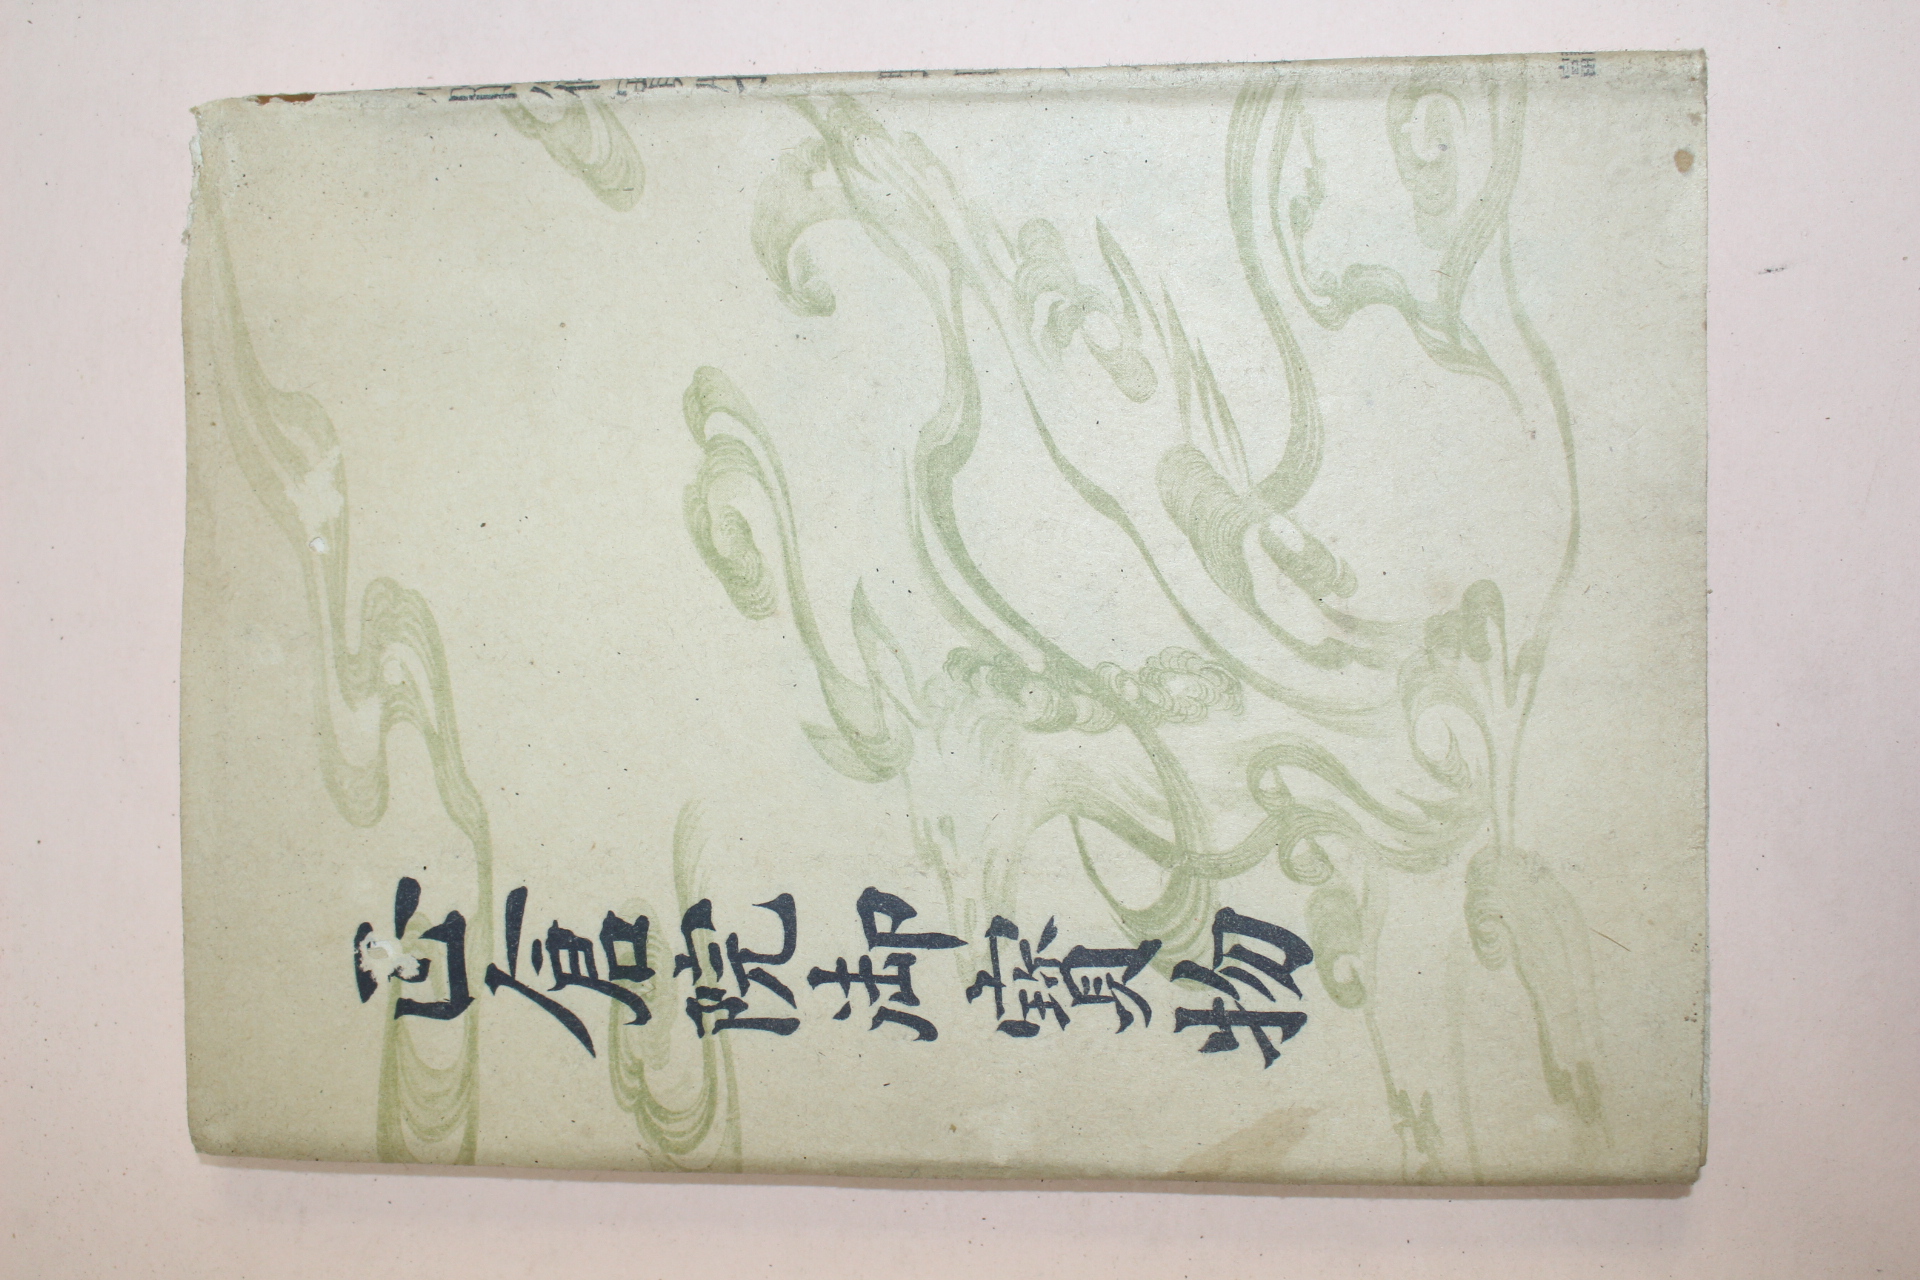 正倉院御寳物